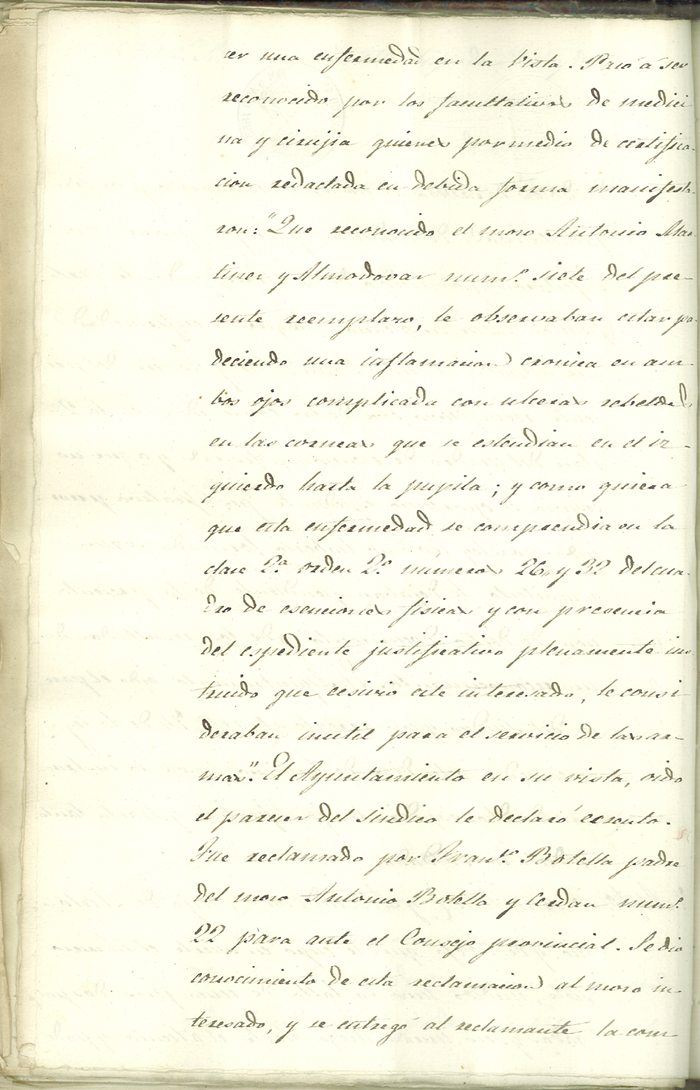 cer una enfermedad en la vista. Pasó á ser
reconocido por los facultativos de medici
na y cirujia quienes por medio de certifica-
cion redactada en debida forma manifesta-
ron: "Que reconocido el moso Antonio Mar
tines y Almodovar num.º siete del pre-
sente reemplazo, le observaban estar pa
deciendo una inflamacion cronica en am-
bos ojos complicada con ulceras rebeldes
en las corneas que se estendian en el iz-
quierdo hasta la pupila; y como quiera
que esta enfermedad se comprendia en la
clase 2.ª orden 2.º numeros 26 y 32 del cua-
dro de esenciones fisicas y con presencia
del espediente justificativo plenamente ins
truido que ecsivio este interesado, le consi
deraban inutil para el servicio de las ar-
mas". El Ayuntamiento en su vista, oido
el parecer del Sindico le declaró ecsento.
Fue reclamado por Fran.co Botella padre
del moso Antonio Botella y Cerdan num.º
22 para ante el Consejo provincial. Se dio
conocimiento de esta reclamacion al moso in-
teresado, y se entregó al reclamante la com